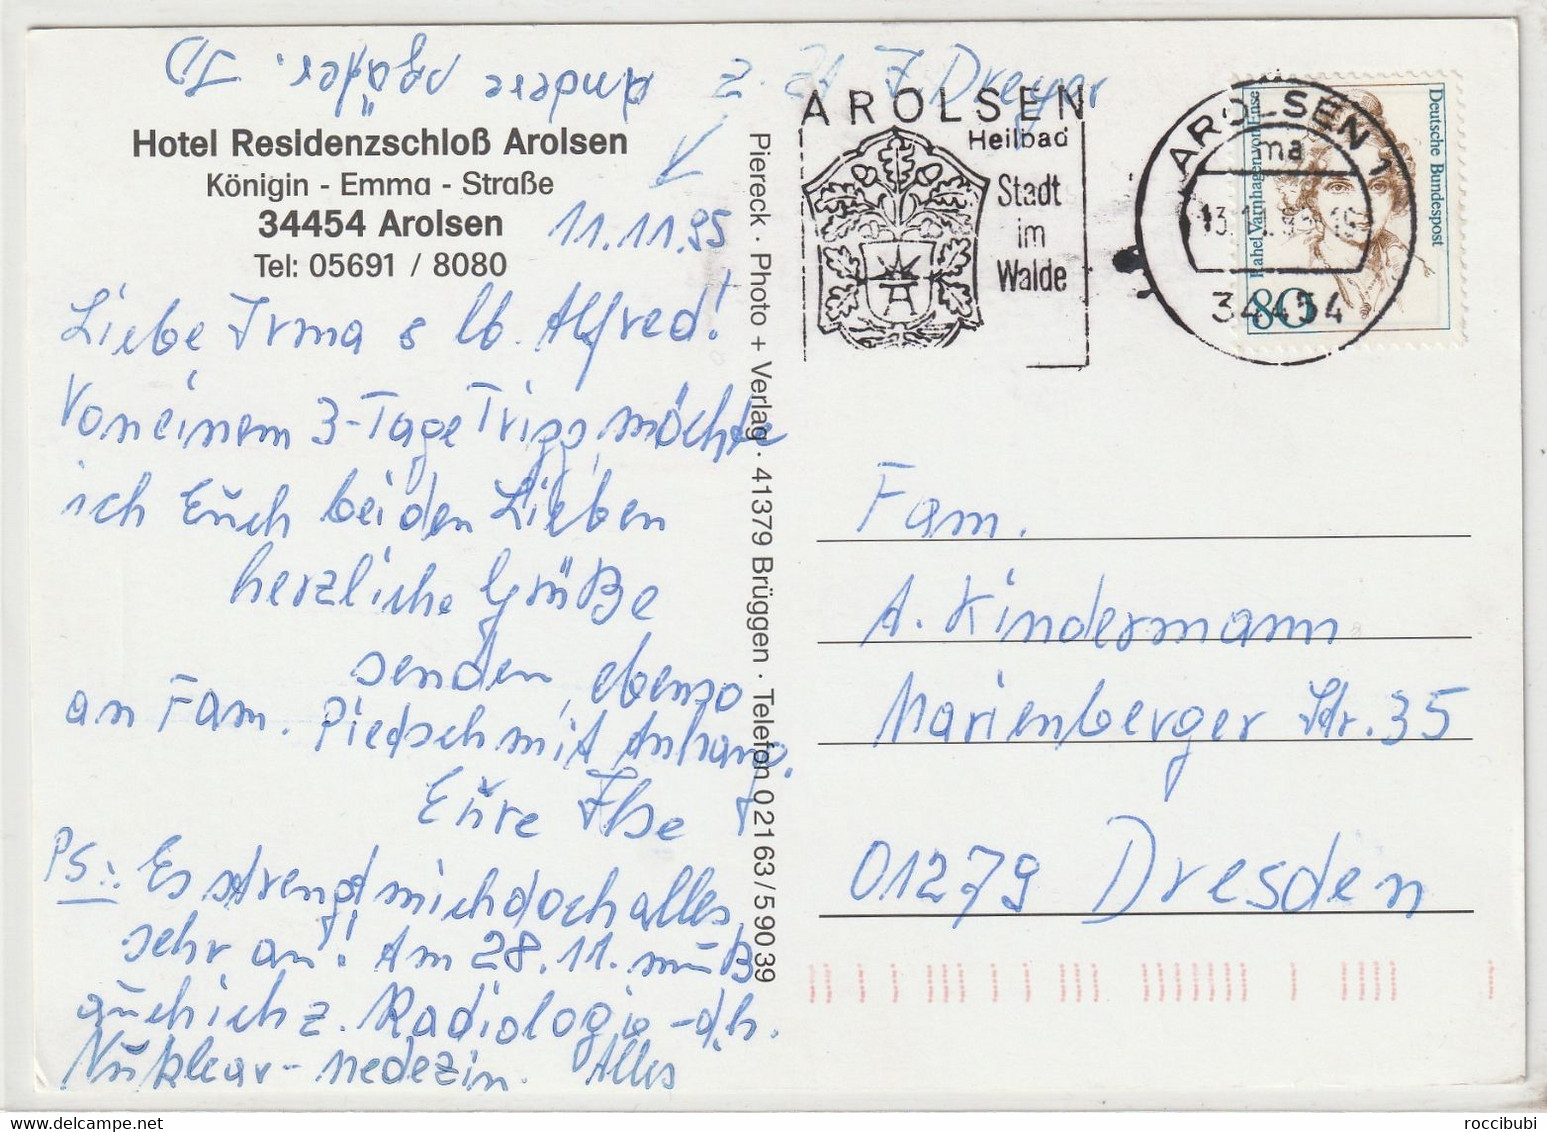 z. Zt. I Dreyer
andere später. D
Hotel Residenzschloß Arolsen
Königin - Emma - Straße
34454 Arolsen
Tel: 05691 / 8080
11.11.95
Liebe Irma & lb. Alfred!
Von einem 3-Tage Tripp, möchte
ich Euch beiden Lieben
herzliche Grüße
senden, ebenso
an Fam. Piedsch mit Anhang.
Eure Ilse
PS.: Es strengt mich doch alles
sehr an! Am 28.11. muß
auch ich z. Radiologie - d.h.
Nuklear - medezin. Alles
Piereck · Photo + Verlag · 41379 Brüggen · Telefon 02163/59039
AROLSEN
Heilbad
Stadt
im
Walde
AROLSEN 1
ma
34454
Deutsche Bundespost
Rahel Varnhagen von Ense
80
Fam.
A. Kindermann
Marienberger Str. 35
01279 Dresden
roccibubi